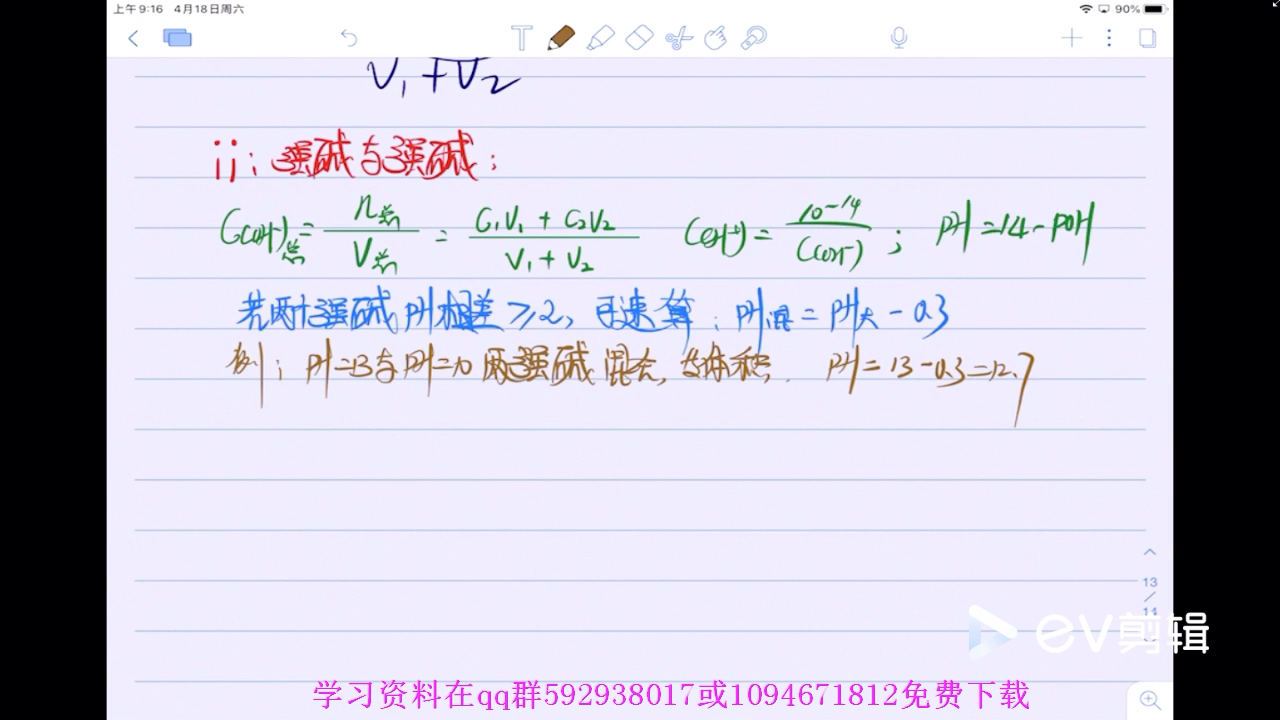 上午9:16 4月18日周六
90%
V₁+V₂
ii: 强碱与强碱:
C(OH⁻)总 = n总/V总 = C₁V₁ + C₂V₂/V₁ + V₂ C(H⁺) = 10⁻¹⁴/C(OH⁻) ; PH=14-POH
若两个强碱PH相差≥2, 可速算: PH混 = PH大 - 0.3
例: PH=13与PH=10两强碱混合, 等体积. PH = 13-0.3=12.7
13
/
14
EV剪辑
学习资料在qq群592938017或1094671812免费下载